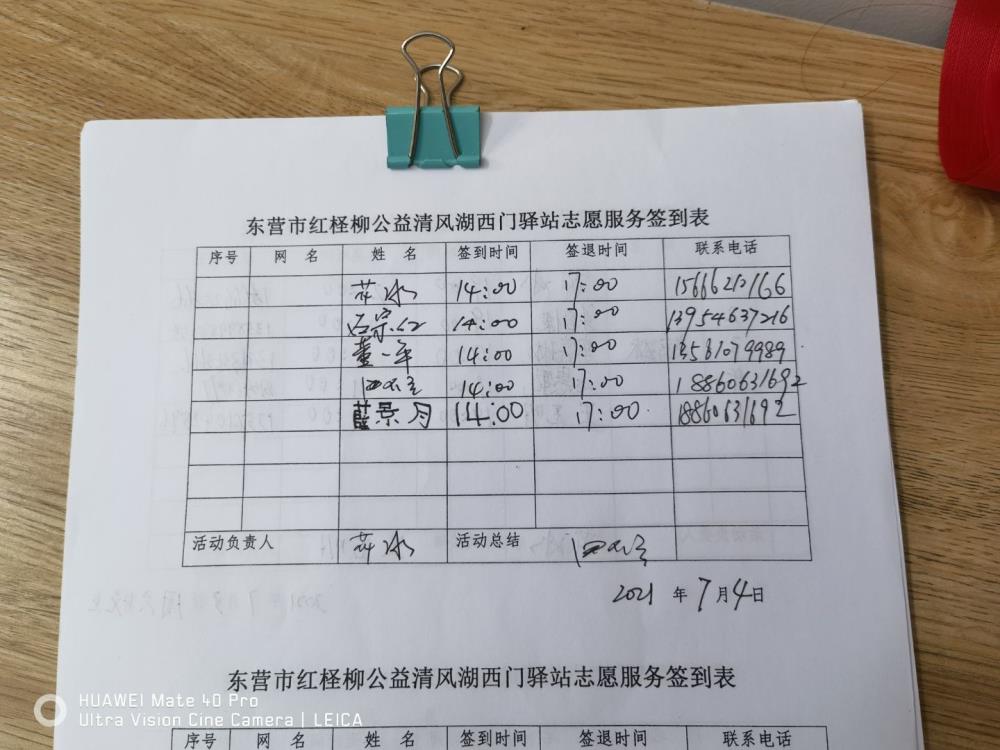 东营市红柽柳公益清风湖西门驿站志愿服务签到表
序号 网 名 姓 名 签到时间 签退时间 联系电话
14:00 17:00 15666212166
14:00 17:00 13954637216
董一年 14:00 17:00 13561079989
14:00 17:00 18860631692
蓝景月 14:00 17:00 18860631692
活动负责人 活动总结
2021 年 7 月 4 日
东营市红柽柳公益清风湖西门驿站志愿服务签到表
序号 网 名 姓 名 签到时间 签退时间 联系电话
HUAWEI Mate 40 Pro
Ultra Vision Cine Camera | LEICA